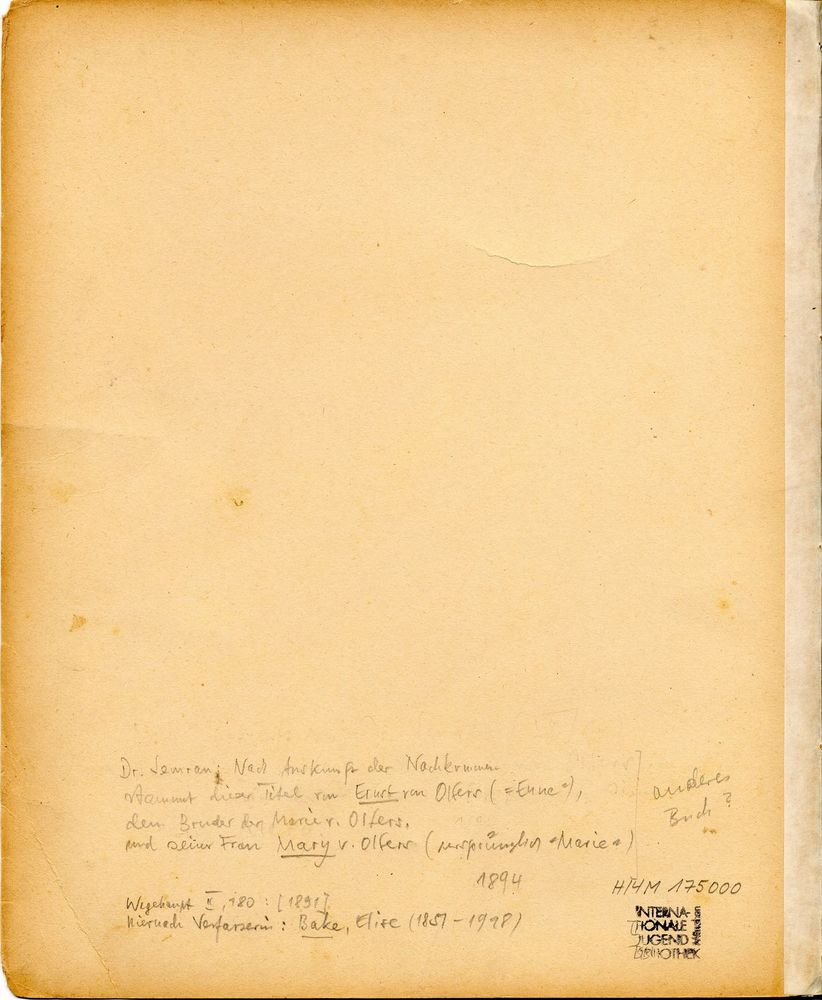 Dr. Semrau: Nach Auskunft der Nachkommen
stammt dieser Titel von Ernst von Olfers (="Enne"),
dem Bruder der Marie v. Olfers,
und seiner Frau Mary v. Olfers (ursprünglich "Marie")
anderes
Buch?
1894
Wegehaupt II, 180: [1891]
Hiernach Verfasserin: Bake, Elise (1851-1918)
H/4M 175000
INTERNA-
TIONALE
JUGEND
BIBLIOTHEK
München